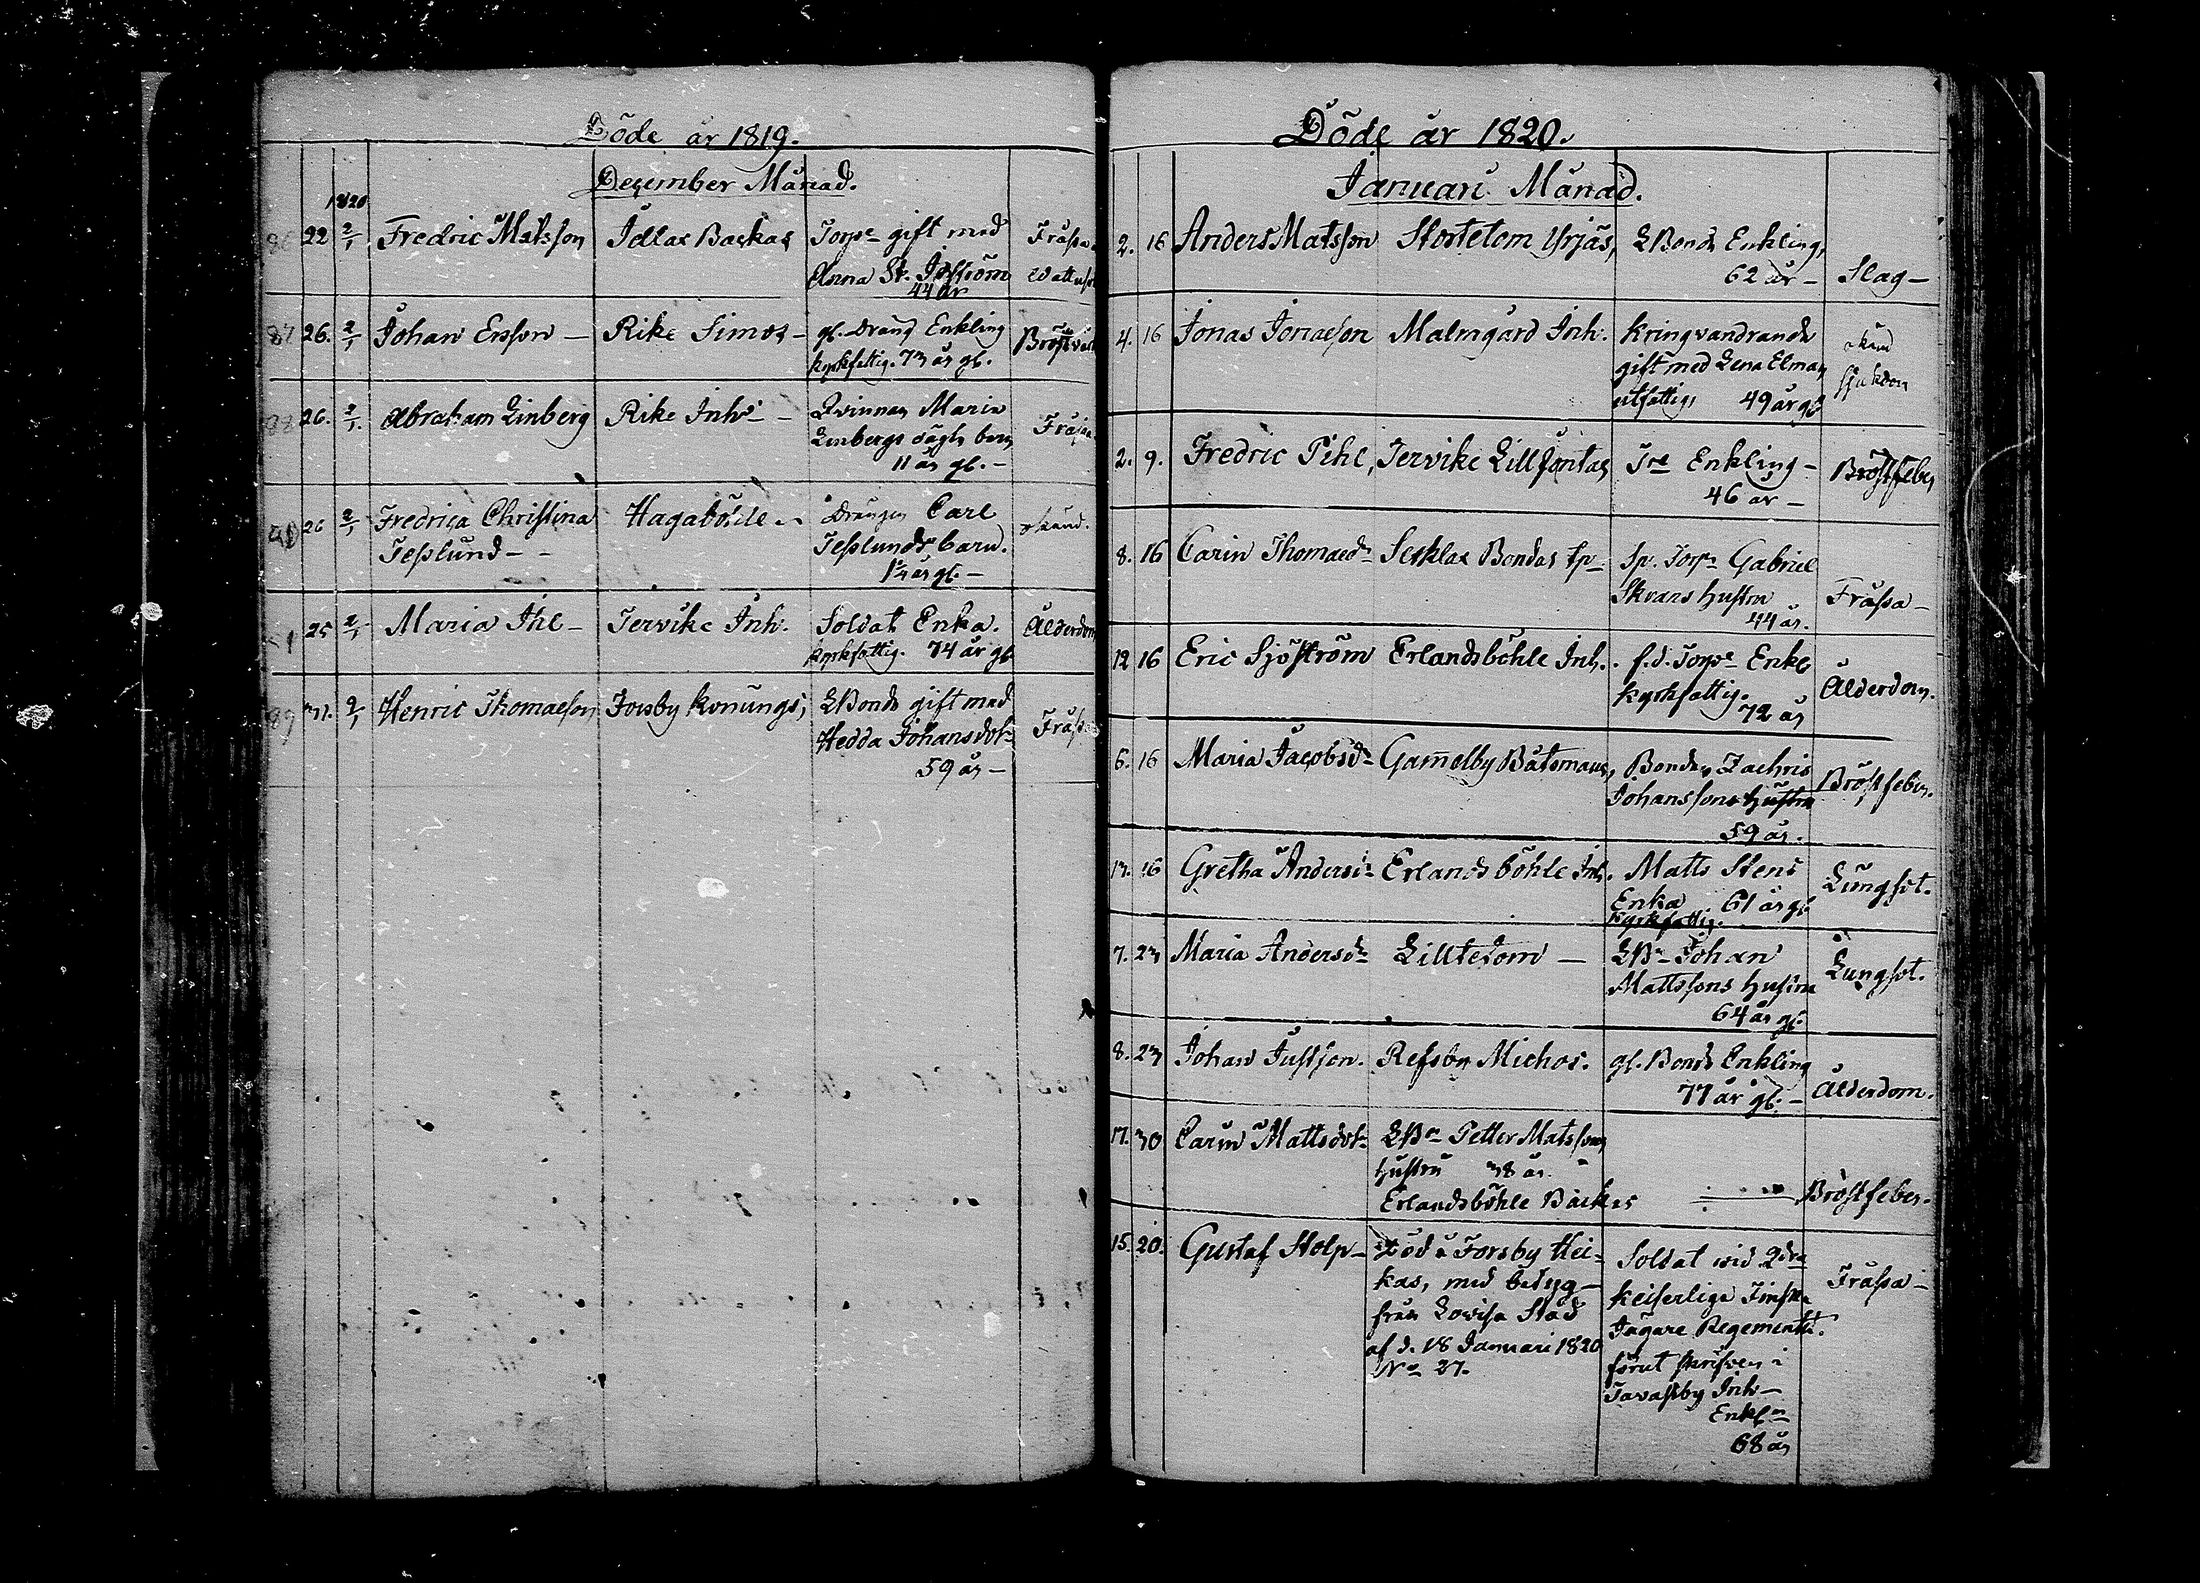 Döde år 1819.
December Månad.
1820
22 2/1 Fredric Matsson Idlax Backas Torpr gift med Fråssa
Anna St. Öström
44 år
87 26. 2/1 Johan Ersson — Rike Simos — gl. Dräng Enkling Bröstvärk
kyrkfattig. 73 år gl.
26. 2/1. Abraham Linberg Rike Inhs — Qvinnan Maria Fråssa
Linbergs oägta barn
11 år gl. —
26 2/1 Fredrica Christina Hagaböle — Drängen Carl okänd.
Tesslund — Tesslunds barn.
1¼ år gl. —
25 2/1 Maria Ihl — Tervike Inh. Soldat Enka. Ålderdom
kyrkfattig. 74 år gl
89 31. 9/1 Henric Thomasson Forsby Konungs, LBonde gift med Fråssa
Hedda Johansdotr
59 år —
Döde år 1820.
Januari Månad.
2. 16 Anders Matsson Stortetom Yrjäs, LBonde Enkling,
62 år — Slag —
4. 16 Jonas Jonasson Malmgård Inh. Kringvandrande okänd
gift med Lena Elman sjukdom
utfattig, 49 år gl
2. 9. Fredric Pihl, Tervike Lilljontas Enkling — Bröstfeber
46 år —
8. 16 Carin Thomasdr Särklax Bondas Sp. Torpr Gabriel
Skvars Hustru Fråssa —
44 år.
12 16 Eric Sjöström Erlandsböhle Inh. f.d. Torpr Enkl
kyrkfattig. Ålderdom.
72 år
6. 16 Maria Jacobsdr Gammelby Båtsmans, Bonden Zachris Bröstfeber.
Johanssons Hustru
59 år.
13. 16 Gretha Andersdr Erlandsböhle Inh. Matts Stens Lungsot.
Enka 61 år gl
kyrkfattig.
7. 23 Maria Andersdr Lilltetom — LBr Johan Lungsot.
Mattssons Hustru
64 år gl.
8. 23 Johan Justson. Refsby Michos. gl. Bonde Enkling
77 år gl. — Ålderdom.
17. 30 Carin Mattsdotr LBr Petter Matssons
Hustru 38 år.
Erlandsböhle Backas Bröstfeber.
15. 20. Gustaf Stolp — död i Forsby Hei- Soldat vid 2dra Fråssa —
kas, med betyg — keiserliga Finska
från Lovisa Stad Jägare Regementet.
af d. 18 Januari 1820 förut skrifven i
No 27. Tavastby Inh —
Enkln
68 år